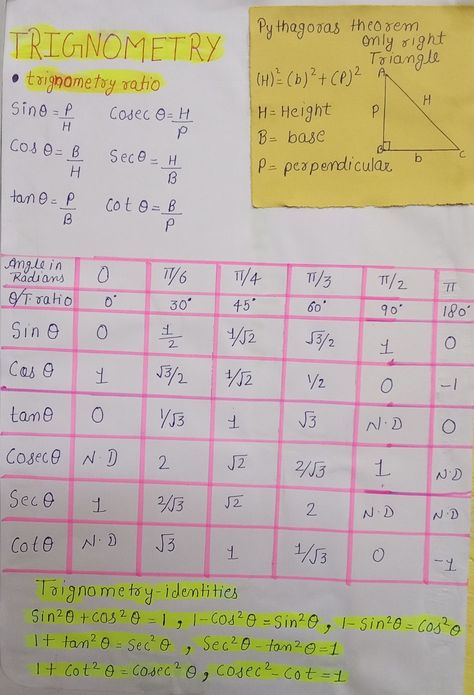 TRIGNOMETRY
• trignometry ratio
Sinθ = P/H Cosec θ = H/P
Cosθ = B/H Secθ = H/B
tanθ = P/B Cotθ = B/P
Pythagoras theorem
only right
Triangle
(H)² = (b)² + (P)²
H = Height
B = base
P = perpendicular
A
P H
B b C
Angle in Radians 0 π/6 π/4 π/3 π/2 π
θ/T.ratio 0° 30° 45° 60° 90° 180°
Sin θ 0 1/2 1/√2 √3/2 1 0
Cos θ 1 √3/2 1/√2 1/2 0 -1
tanθ 0 1/√3 1 √3 N·D 0
Cosecθ N·D 2 √2 2/√3 1 N·D
Sec θ 1 2/√3 √2 2 N·D N·D
Cotθ N·D √3 1 1/√3 0 -1
Trignometry-identities
Sin²θ + cos²θ = 1, 1-Cos²θ = Sin²θ, 1-Sin²θ = Cos²θ
1 + tan²θ = Sec²θ, Sec²θ - tan²θ = 1
1 + Cot²θ = Cosec²θ, Cosec² - Cot = 1